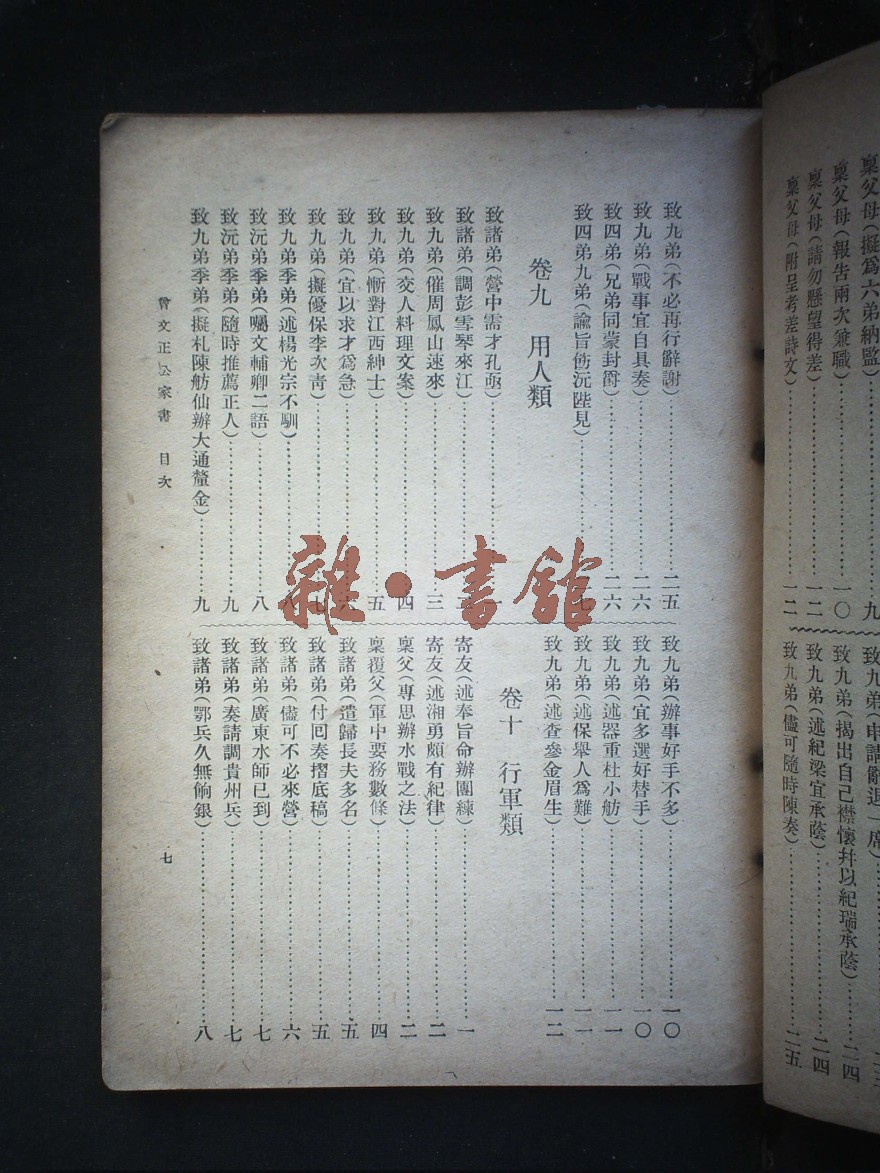 稟父母(擬爲六弟納監)……九
稟父母(報告兩次兼職)……一〇
稟父母(請勿懸望得差)……一二
稟父母(附呈考差詩文)……一二
致九弟(申請辭退一席)
致九弟(揭出自己襟懷幷以紀瑞承蔭)……二四
致九弟(述紀梁宜承蔭)……二四
致九弟(儘可隨時陳奏)……二五
致九弟(不必再行辭謝)……二五
致九弟(戰事宜自具奏)……二六
致四弟(兄弟同蒙封爵)……二六
致四弟九弟(諭旨飭沅陛見)……七
卷九 用人類
致諸弟(營中需才孔亟)……一
致諸弟(調彭雪琴來江)
致九弟(催周鳳山速來)……三
致九弟(交人料理文案)……四
致九弟(慚對江西紳士)……五
致九弟(宜以求才爲急)……六
致九弟(擬優保李次靑)……七
致九弟季弟(述楊光宗不馴)……八
致沅弟季弟(囑文輔卿二語)……八
致沅弟季弟(隨時推薦正人)……九
致九弟季弟(擬札陳舫仙辦大通釐金)……九
致九弟(辦事好手不多)……一〇
致九弟(宜多選好替手)……一〇
致九弟(述器重杜小舫)……一一
致九弟(述保舉人爲難)……一一
致九弟(述查參金眉生)……一二
卷十 行軍類
寄友(述奉旨命辦團練)……一
寄友(述湘勇頗有紀律)……二
稟父(專思辦水戰之法)……二
稟覆父(軍中要務數條)……四
致諸弟(遣歸長夫多名)……五
致諸弟(付回奏摺底稿)……五
致諸弟(儘可不必來營)……六
致諸弟(廣東水師已到)……七
致諸弟(奏請調貴州兵)……七
致諸弟(鄂兵久無餉銀)……八
曾文正公家書 目次
七
雜·書館